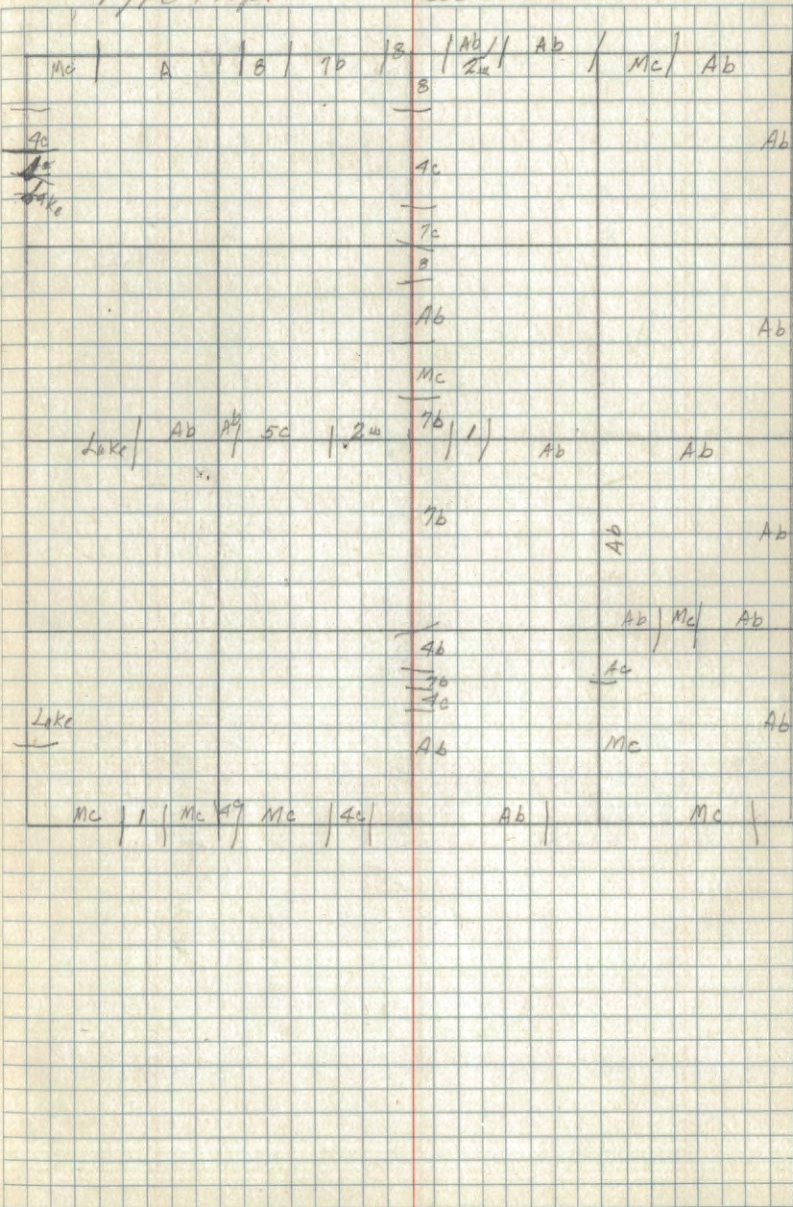 Mc | A | 8 | 7b | 8 | Ab / 2w / Ab / Mc / Ab
8
4c
Ab
4c
Lake
7c
8
Ab
Ab
Mc
7b
Lake | Ab Ab / 5c | 2w | 1 ) Ab Ab
7b
Ab
Ab
Ab | Mc | Ab
4b
Ac
7b
4c
Lake
Ab
Ab
Mc
Mc | 1 | Mc 4c / Mc | 4c | Ab | Mc \